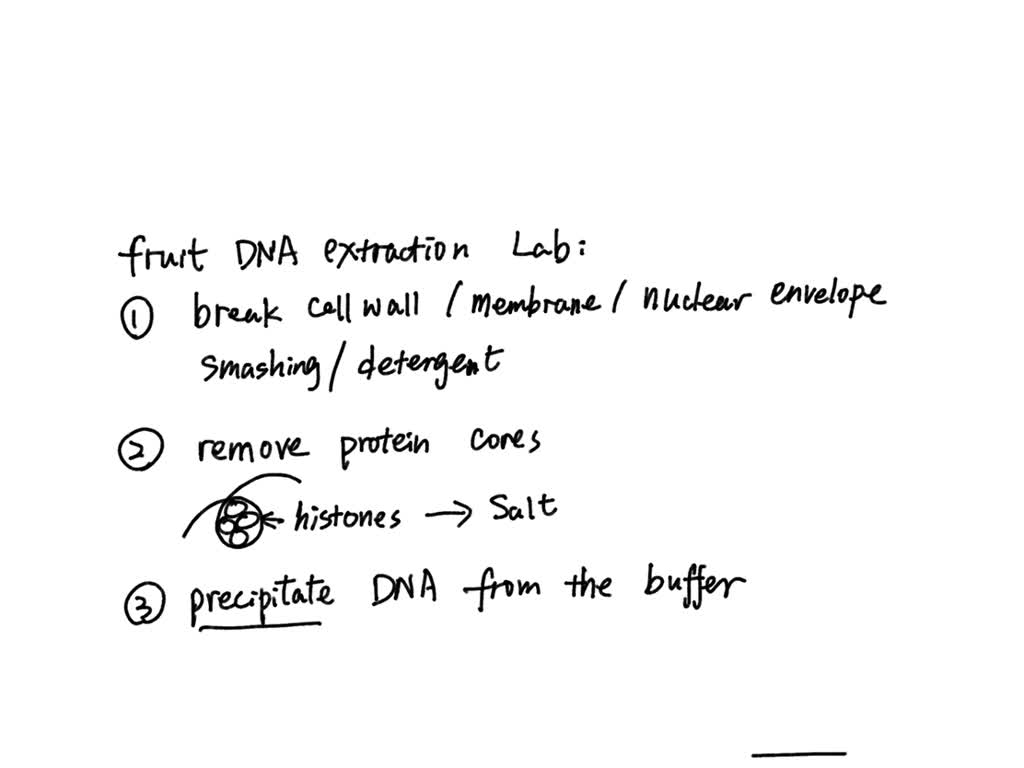 fruit DNA extraction Lab:
① break cell wall / membrane / nuclear envelope
smashing / detergent
② remove protein cores
← histones → Salt
③ precipitate DNA from the buffer